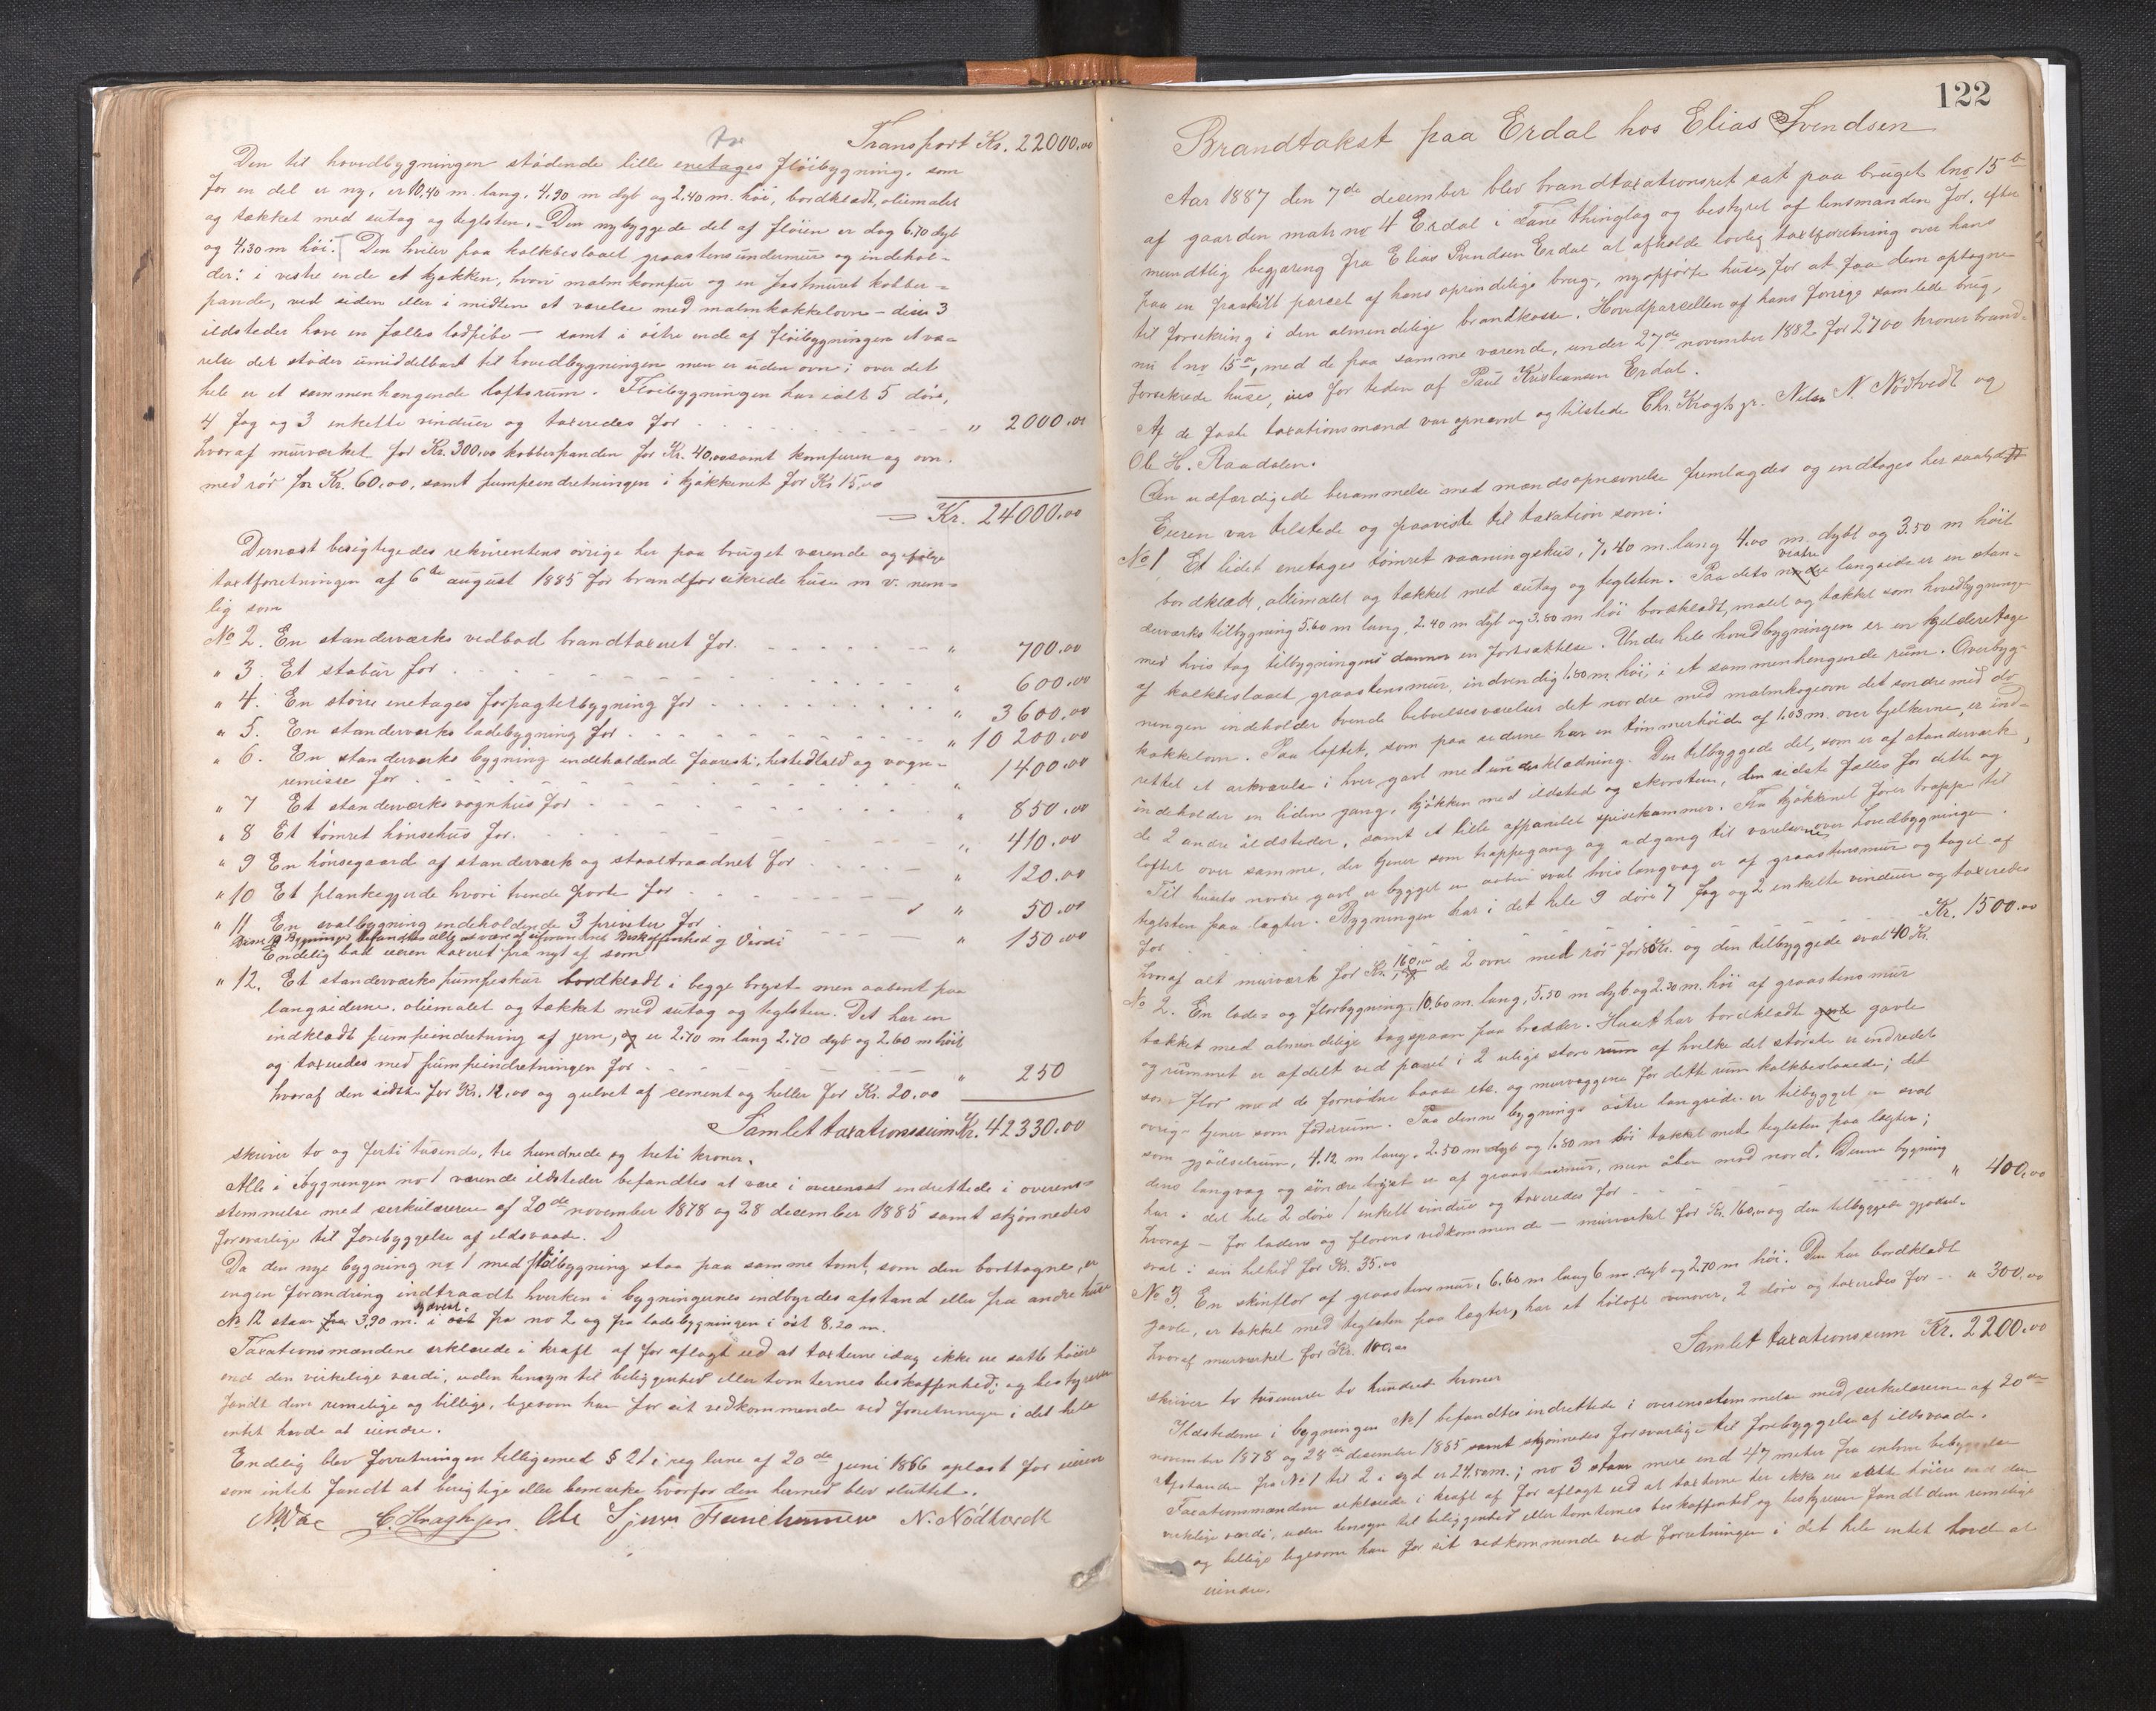 Transport Kr. 22000.00
Den til hovedbygningen stødende lille enetages fløibygning, som
for en del er ny, er 10,40 m. lang, 4,90 m dyb og 2,40 m. høi, bordklædt, oliemalet
og tækket med sutag og teglsten. Den nybyggede del af fløien er dog 6,70 dyb
og 4,30 m høi. Den hviler paa kalkbeslaaet graastensundermur og indehol-
der: i vestre ende et kjøkken, hvori malmkomfur og en fastmuret kobber-
pande, ved siden eller i midten et værelse med malmkakkelovn – disse 3
ildsteder have en fælles lodpibe – samt i østre ende af fløibygningen et væ-
relse der støder umiddelbart til hovedbygningen men er uden ovn; over det
hele er et sammenhængende loftsrum. Fløibygningen har ialt 5 døre,
4 fag og 3 enkelte vinduer og taxeredes for " 2000.00
hvoraf murværket for Kr. 300,00 kobberpanden for Kr. 40,00 samt komfuren og ovn.
med rør for Kr. 60,00, samt pumpeindretningen i kjøkkenet for Kr 15,00
= Kr. 24000.00
Dernæst besigtigedes rekvirentens øvrige her paa bruget værende og ifølge
taxtforretningen af 6te august 1885 for brandforsikrede huse m v. nem-
lig som
No 2. En standerværks vedbod brandtaxeret for " 700.00
" 3. Et stabur for " 600.00
" 4. En større enetages forpagterbygning for " 3600.00
" 5. En standerværks ladebygning for " 10200.00
" 6. En standerværks bygning indeholdende faaresti, hestestald og vogn-
remisse for " 1400.00
" 7 Et standerværks vognhus for " 850.00
" 8 Et tømret hønsehus for " 410.00
" 9 En hønsegaard af standerværk og staaltraadnet for " 120.00
" 10 Et plankegjerde hvori tvende porte for " 50.00
" 11 En svalbygning indeholdende 3 priveter for " 150.00
Disse Bygninger befandtes alle at være af uforandret Beskaffenhed og Værdi
Endelig bad eieren taxeret fra nyt af som
" 12. Et standerværks pumpeskur bordklædt i begge bryst men aabent paa
langsiderne, oliemalet og tækket med sutag og teglsten. Det har en
indklædt pumpeindretning af jern, og er 2.70 m lang 2.70 dyb og 2.60 m høit
og taxeredes med pumpeindretningen for " 250
hvoraf den sidste for Kr. 12.00 og gulvet af cement og heller for Kr. 20.00
Samlet taxationssum Kr. 42330.00
skriver to og førti tusende, tre hundrede og treti kroner.
Alle i bygningen no 1 værende ildsteder befandtes at være i overensst indrettede i overens-
stemmelse med cerkulærerne af 20de november 1878 og 28 december 1885 samt skjønnedes
forsvarlige til forebyggelse af ildsvaade.
Da den nye bygning no 1 med fløibygning staa paa samme tomt, som den borttagne, er
ingen forandring indtraadt hverken i bygningernes indbyrdes afstand eller fra andre huse
No 12 staar fra 3,90 m. i øst sydvest fra no 2 og fra ladebygningen i øst 8,20 m.
Taxationsmændene erklærede i kraft af før aflagt ed at taxterne idag ikke ere satte høiere
end den virkelige værdi, uden hensyn til beliggenhed eller tomternes beskaffenhed; og bestyreren
fandt dem rimelige og billige, ligesom han for sit vedkommende ved forretningen i det hele
intet havde at erindre.
Endelig blev forretningen tilligemed § 21 i reglerne af 20de juni 1866 oplæst for eieren
som intet fandt at berigtige eller bemærke hvorfor den hermed blev sluttet.
C. Kraghjun. N. Nödtvedt
122
Brandtakst paa Erdal hos Elias Svendsen
Aar 1887 den 7de december blev brandtaxationsret sat paa bruget lno 15 b
af gaarden matr no 4 Erdal i Fane thinglag og bestyret af lensmanden for, efter
mundtlig begjæring fra Elias Svendsen Erdal at afholde lovlig taxtforretning over hans
paa en fraskilt parcel af hans oprindelige brug, nyopførte huse, for at faa dem optagne
til forsikring i den almendelige brandkasse. Hovedparcellen af hans forrige samlede brug,
nu lno 15 a, med de paa samme værende, under 27de november 1882 for 2700 kroner brand-
forsikrede huse, eies for tiden af Paul Kristiansen Erdal.
Af de faste taxationsmænd var opnævnt og tilstede Chr. Kragh jr. Nils N. Nødtvedt og
Ole H. Raadalen.
Den udfærdigede berammelse med mandsopnævnelse fremlagdes og indtages her saalydende
Eieren var tilstede og paaviste til taxation som:
No 1. Et lidet enetages tømret vaaningshus, 7.40 m. lang 4.00 m. dybt og 3.50 m høit
bordklædt, oliemalet og tækket med sutag og teglsten. Paa dets nordre vestre langside er en stan-
derværks tilbygning 5.60 m lang, 2.40 m dyb og 3.80 m høi bordklædt, malet og tækket som hovedbygningen
med hvis tag tilbygningens danner en fortsættelse. Under hele hovedbygningen er en kjelderetage
af kalkbeslaaet graastensmur, indvendig 1.80 m høi, i et sammenhengende rum. Overbyg-
ningen indeholder tvende beboelsesværelser det nordre med malmkogeovn det søndre med do
kakkelovn. Paa loftet, som paa siderne har en tømmerhøide af 1.03 m. over bjelkerne, er ind-
rettet et arkværelse i hver gavl med underklædning. Den tilbyggede del, som er af standerværk,
indeholder en liden gang, kjøkken med ildsted og skorsten, den sidste fælles for dette og
de 2 andre ildsteder, samt et lille afpanelet spisekammer. Fra kjøkkenet fører trappe til
loftet over samme, der tjener som trappegang og adgang til værelserne over hovedbygningen.
Til husets nordre gavl er bygget en aaben sval hvis langvæg er af graastensmur og taget af
teglsten paa lægter. Bygningen har i det hele 9 døre 7 fag og 2 enkelte vinduer og taxeredes
for Kr. 1500.00
hvoraf alt murværk for Kr. 160,00 de 2 ovne med rør for Kr. og den tilbyggede sval 40 Kr.
No 2. En lade- og florbygning, 10.60 m. lang, 5.50 m dyb og 2.30 m. høi af graastensmur
tækket med almindelige tagspaan paa bredder. Huset har bordklædte gavle
og rummet er afdelt ved panel i 2 ulige store rum af hvilke det største er indredet
som flor med de fornødne baase etc. og murvæggene for dette rum kalkbeslaaede; det
øvrige tjener som foderrum. Paa denne bygnings østre langside er tilbygget en sval
som gjødselrum, 4.12 m lang, 2.50 m dyb og 1.80 m høi tækket med teglsten paa lægter;
dens langvæg og søndre bryst er af graastensmur, men åben mod nord. Denne bygning
har i det hele 2 døre 1 enkelt vindue og taxeredes for " 400,00
hvoraf – for ladens og florens vedkommende – murværket for Kr. 160,00 og den tilbyggede gjødsel-
sval i sin helhed for Kr. 35.00
No 3. En skinflor af graastensmur, 6.60 m lang 6 m. dyb og 2.70 m høi. Den har bordklædt
gavle, er tækket med teglsten paa lægter, har et høloft ovenover, 2 døre og taxeredes for " 300.00
hvoraf murværket for Kr. 100,00
Samlet taxationssum Kr. 2200.00
skriver to tusende to hundrede kroner
Ildstederne i bygningen No 1 befandtes indrettede i overensstemmelse med cerkulærerne af 20de
november 1878 og 28de desember 1885 samt skjønnedes forsvarlige til forebyggelse af ildsvaade.
Afstanden fra No 1 til 2 i syd er 24.50 m.; no 3 staar mere end 47 meter fra enhver bebyggelse
Taxationsmændene erklærede i kraft af før aflagt ed at taxterne her ikke ere satte høiere end den
virkelige værdi, uden hensyn til beliggenhed eller tomternes beskaffenhed, og bestyreren fandt dem rimelige
og billige ligesom han for sit vedkommende ved forretningen i det hele intet havde at
erindre.